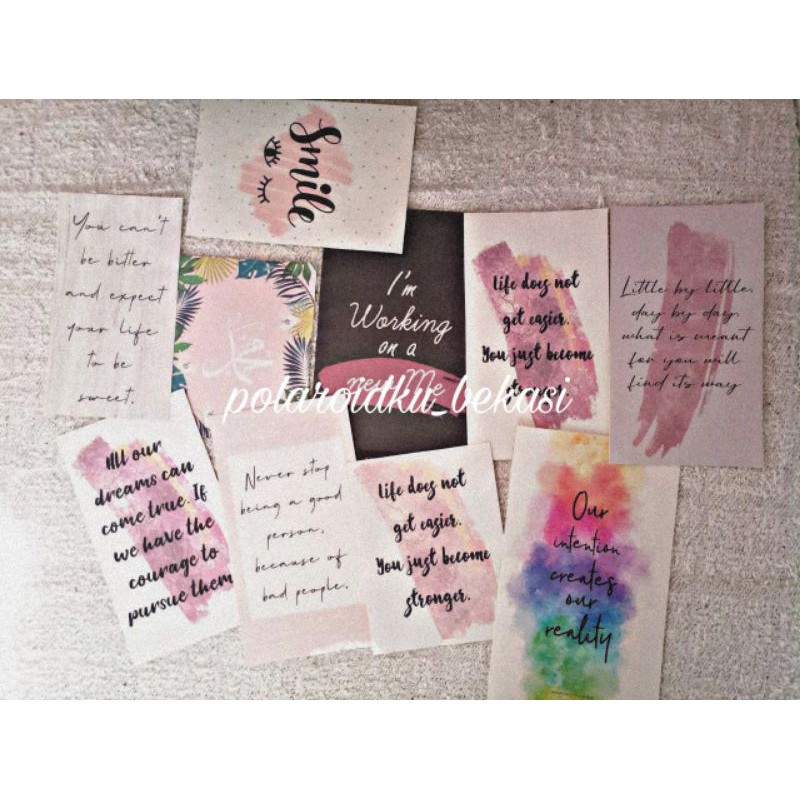 Smile
You can't
be bitter
and expect
your life
to be
sweet.
I'm
Working
on a
new Me
Life does not
get easier.
You just become
Little by little,
day by day,
what is meant
for you will
find its way
polaroidku_bekasi
All our
dreams can
come true. If
we have the
courage to
pursue them
Never stop
being a good
person,
because of
bad people.
Life does not
get easier.
You just become
stronger.
Our
intention
creates
our
reality